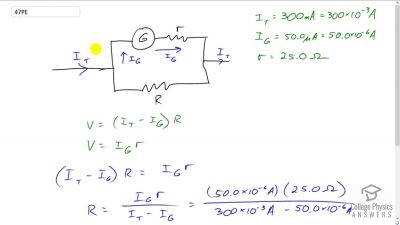 47PE
I_T = 300mA = 300×10⁻³A
I_G = 50.0μA = 50.0×10⁻⁶A
r = 25.0 Ω
G r
I_T I_G I_G I_T
R
V = (I_T − I_G) R
V = I_G r
(I_T − I_G) R = I_G r
R = I_G r / (I_T − I_G) = (50.0×10⁻⁶A)(25.0Ω) / (300×10⁻³A − 50.0×10⁻⁶A)
College Physics
ANSWERS